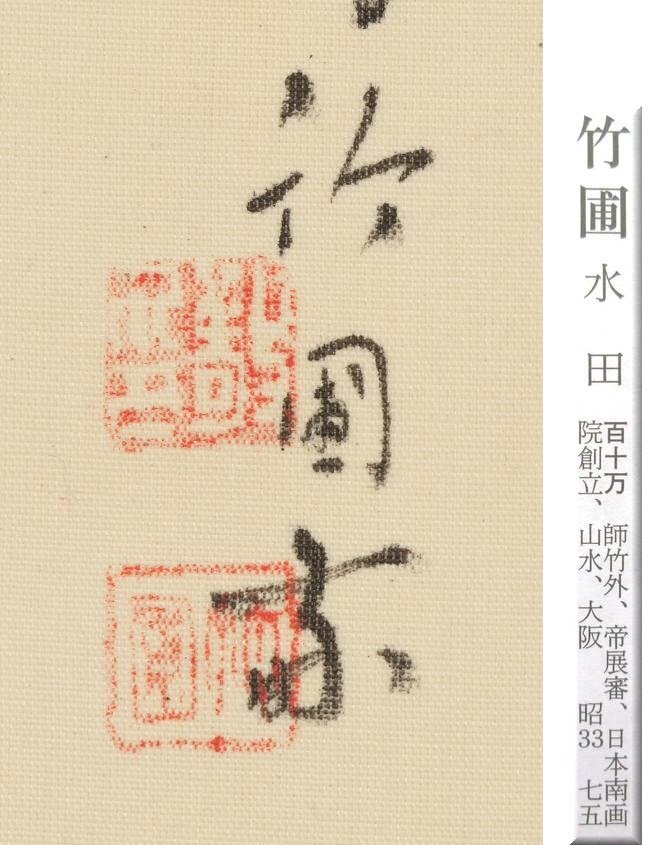 竹圃
竹圃 水田
百十万 師竹外、帝展審、日本南画
院創立、山水、大阪 昭33 七五